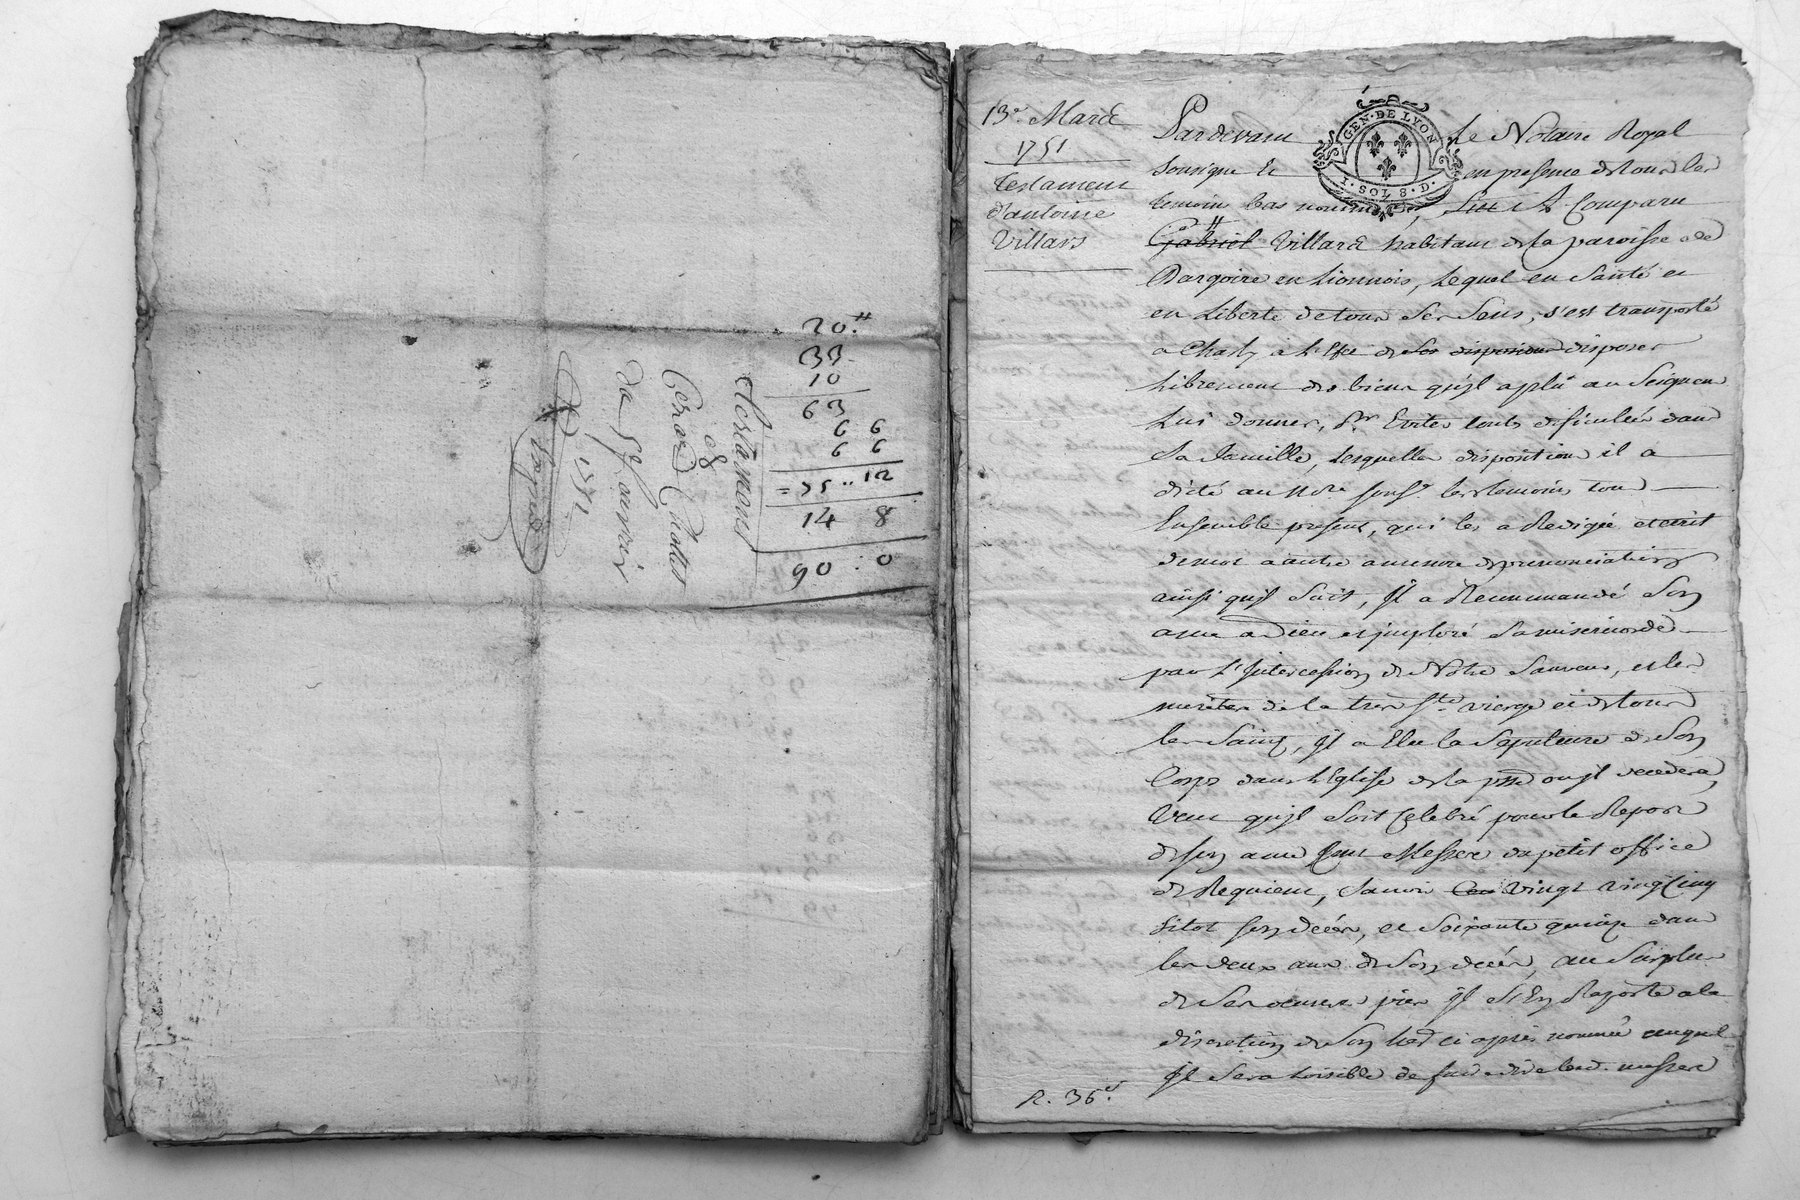 20.#
33
10
63
6 6
6 6
= 75 .. 12
14 8
90 : 0
Testament
de
du 5e janvier
1751
13e. Mars
1751
Testament
d'antoine
Villars
GEN·DE LYON
1·SOL 8·D·
Pardevant Le Notaire Royal
Soussigné et en presence de tous les
temoins bas nommés, A Comparu
Gabriel Villard habitant de la paroisse de
Dargoire en Lionnois, Lequel en Santé et
en Liberté de tous Ses Sens, s'est transporté
a Charly à L'effet de disposer
Librement des biens qu'jl a plû au Seigneur
Lui donner, pr Eviter touts dificultés dans
Sa famille, lesquelles disposition il a
dicté au notre soussé. les temoins tous
Ensemble present, qui les a Redigée et ecrit
de mot a autre a mesure de prononciation
ainsi qujl Suit, Jl a Recommandé Son
ame a Dieu et jmploré Sa misericorde
par L'Intercession de Notre Sauveur, et les
merites de la tres Ste. vierge et de tous
les Saints, Jl a Elu la Sepulture de Son
Corps dans L'Eglise de la psse ou jl decedera,
Veut qujl Soit Celebré pour le Repos
de son ame Cent Messes du petit office
de Requiem, Savoir Vingt Cinq
sitot son décés, et Soixante quinze dans
les deux ans de Son décés, au Surplus
de Ses oeuvres pies jl S'En Raporte a la
discretion de Son hed ci après nommé auquel
Jl Sera Loisible de faire dire lesd. messes
R. 36s.